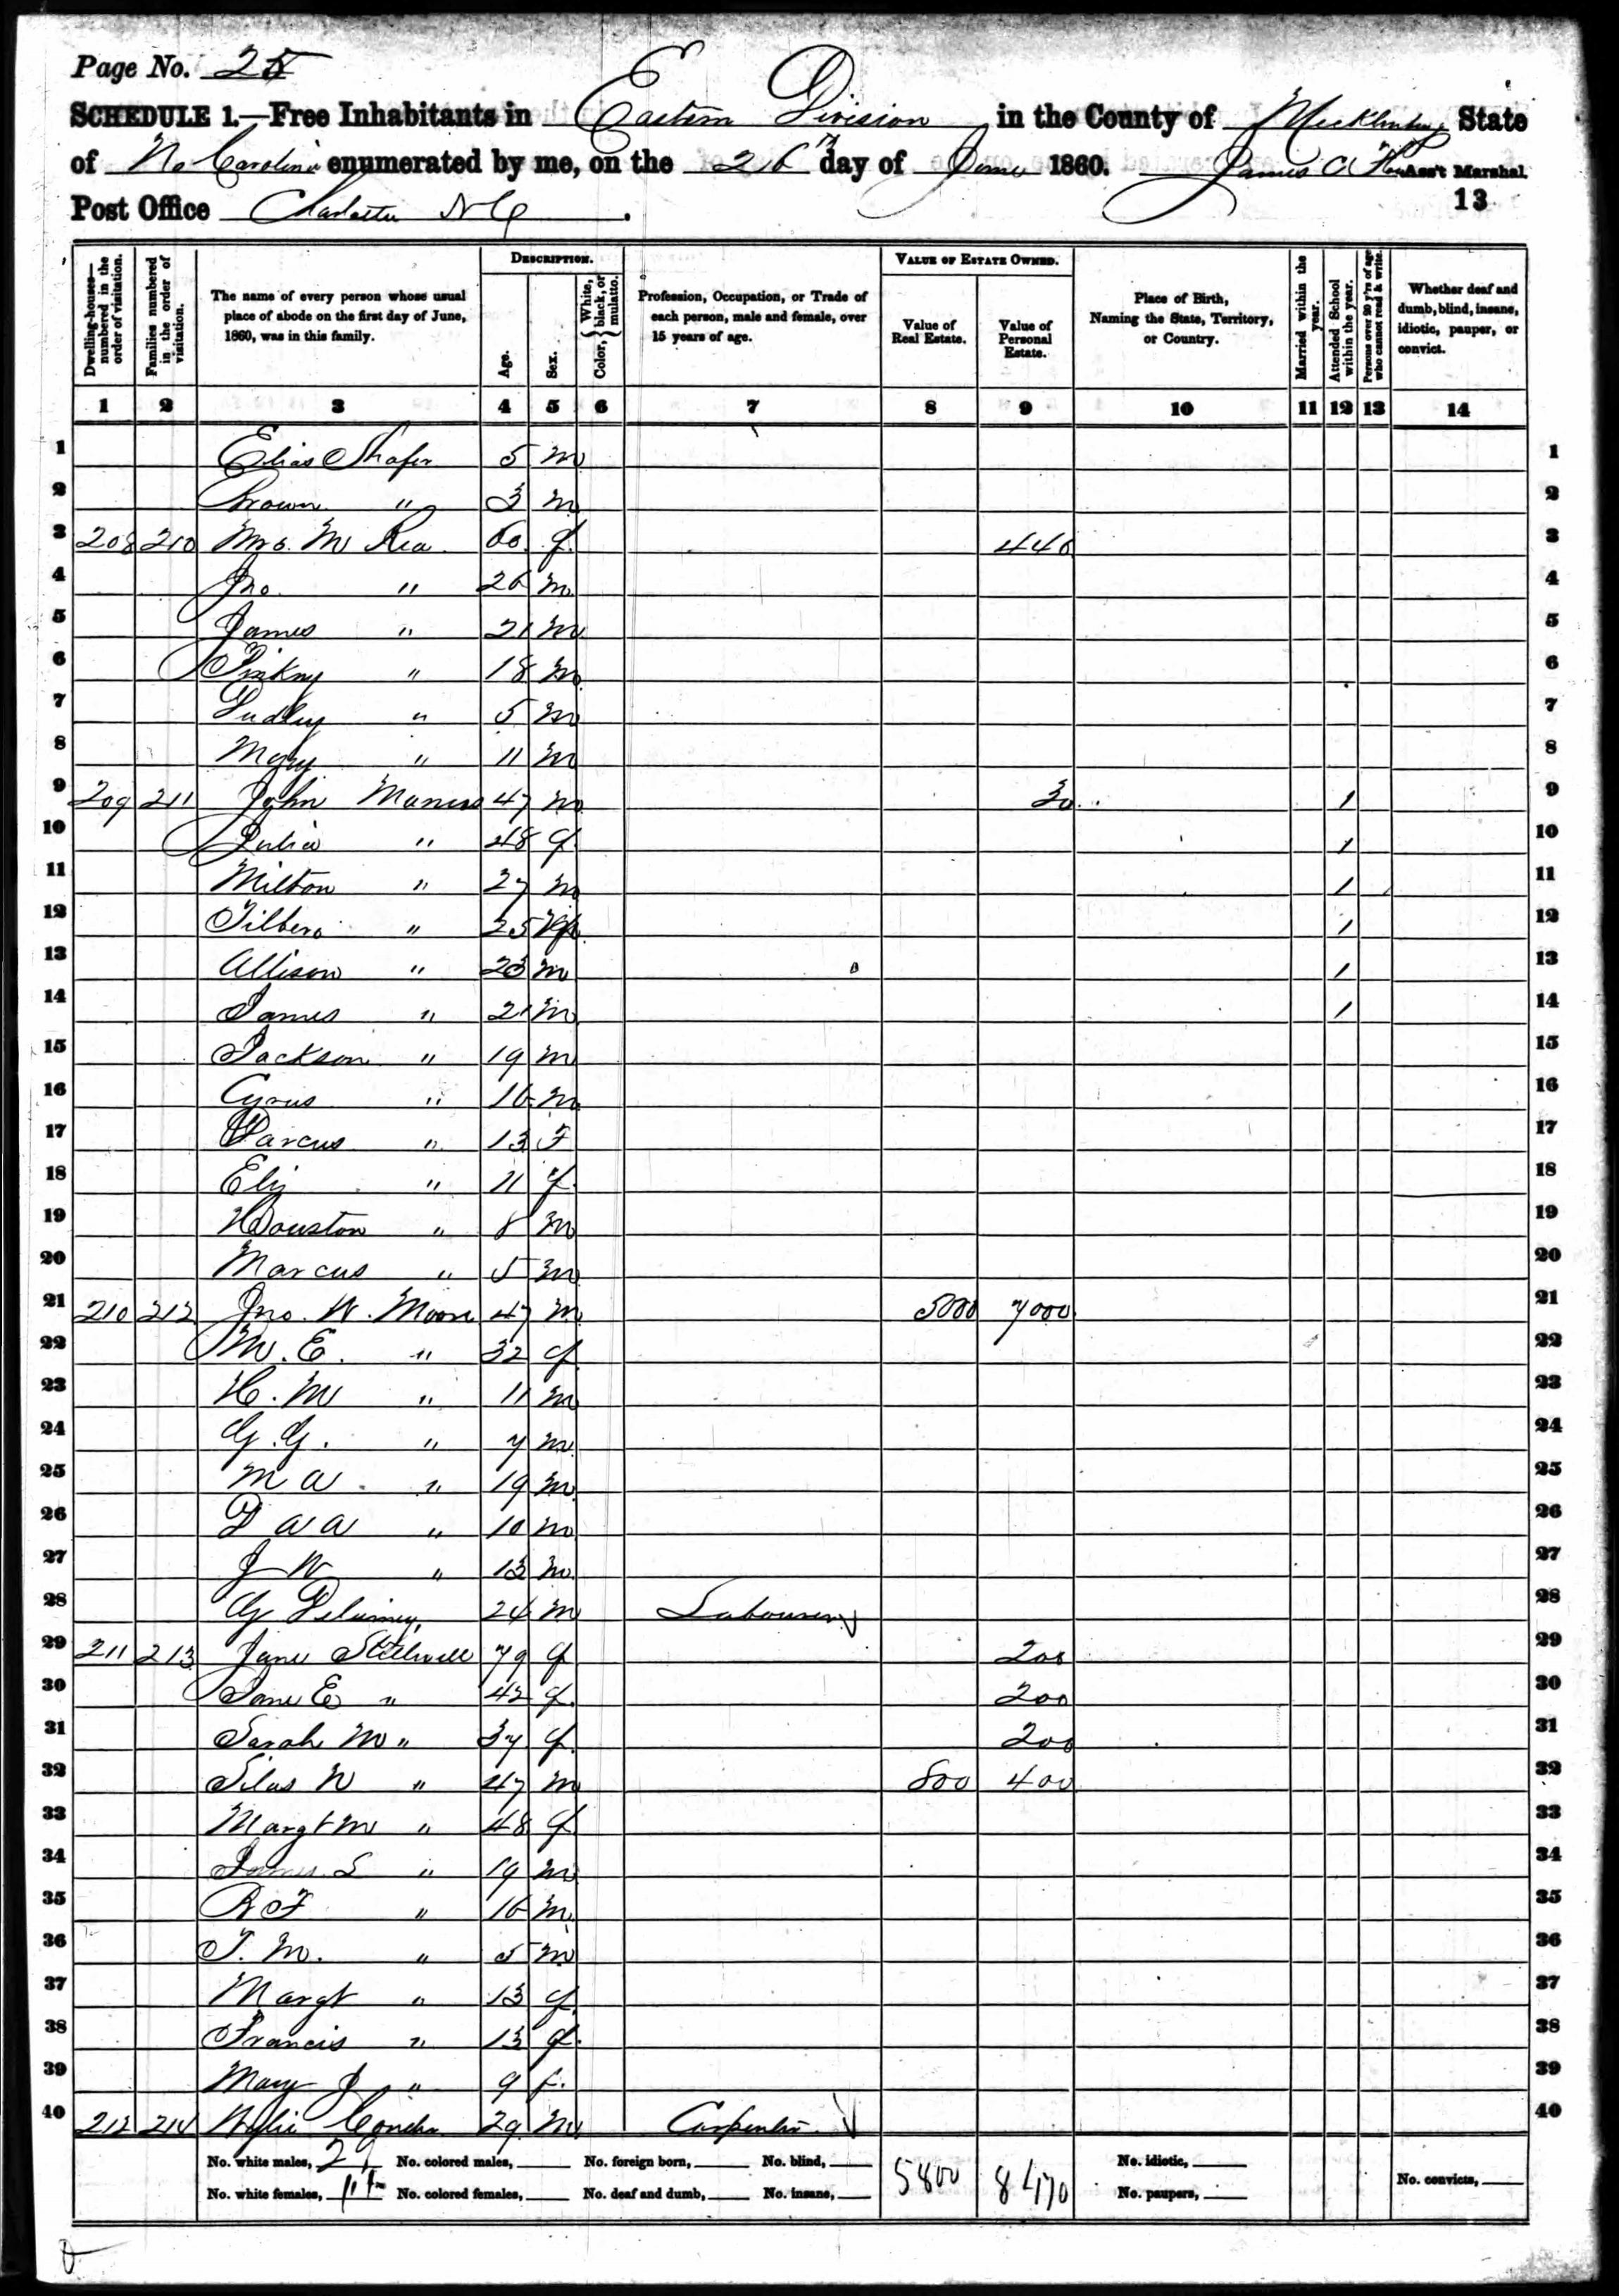 Page No. 25
SCHEDULE 1.—Free Inhabitants in Eastern Division in the County of Mecklenburg State
of No Carolina enumerated by me, on the 26th day of June 1860. James A Ass't Marshal.
Post Office Charlotte N C. 13
Dwelling-houses—numbered in the order of visitation.
Families numbered in the order of visitation.
The name of every person whose usual place of abode on the first day of June, 1860, was in this family.
DESCRIPTION.
Age.
Sex.
Color, { White, black, or mulatto.
Profession, Occupation, or Trade of each person, male and female, over 15 years of age.
VALUE OF ESTATE OWNED.
Value of Real Estate.
Value of Personal Estate.
Place of Birth, Naming the State, Territory, or Country.
Married within the year.
Attended School within the year.
Persons over 20 y'rs of age who cannot read & write.
Whether deaf and dumb, blind, insane, idiotic, pauper, or convict.
1 2 3 4 5 6 7 8 9 10 11 12 13 14
1 Elias Shafer 5 m 1
2 Brown " 3 m 2
3 208 210 Mrs. M Rea 60 f 440 3
4 Jno. " 26 m 4
5 James " 21 m 5
6 Pinkny " 18 m 6
7 " 5 m 7
8 Mary " 11 m 8
9 209 211 John Maness 47 m 30 / 9
10 Julia " 48 f / 10
11 Milton " 27 m / 11
12 " 25 / 12
13 Allison " 23 m / 13
14 James " 21 m / 14
15 Jackson " 19 m 15
16 Cyrus " 16 m 16
17 Darcus " 13 F 17
18 Eliz " 11 f 18
19 Houston " 8 m 19
20 Marcus " 5 m 20
21 210 212 Jno. W. Moore 47 m 5000 7000 21
22 M. E. " 32 f 22
23 H. M " 11 m 23
24 G. G. " 7 m 24
25 M A. " 19 m 25
26 D a a " 10 m 26
27 J W " 13 m 27
28 G 24 m Labourer 28
29 211 213 Jane Stillwell 79 f 200 29
30 Jane E " 42 f 200 30
31 Sarah M " 37 f 200 31
32 Silas W " 47 m 800 400 32
33 Margt M " 48 f 33
34 James S " 19 m 34
35 R F " 16 m 35
36 T. M. " 5 m 36
37 Margt " 13 f 37
38 Francis " 13 f 38
39 Mary J " 9 f. 39
40 212 214 Wylie 29 m Carpenter 40
No. white males, 29 No. colored males, No. foreign born, No. blind, 5800 8470 No. idiotic,
No. white females, No. colored females, No. deaf and dumb, No. insane, No. paupers, No. convicts,